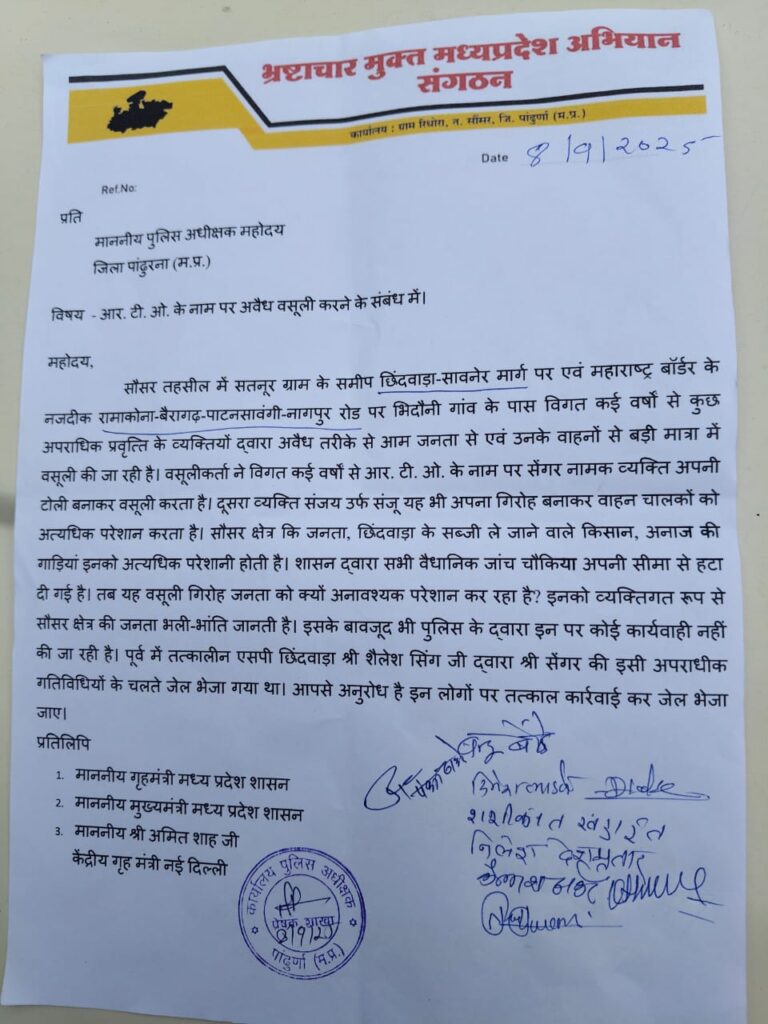 भ्रष्टाचार मुक्त मध्यप्रदेश अभियान
संगठन
कार्यालय : ग्राम रिधोरा, त. सौंसर, जि. पांढुर्णा (म.प्र.)
Date 8/9/2025
Ref.No:
प्रति
माननीय पुलिस अधीक्षक महोदय
जिला पांढुरना (म.प्र.)
विषय - आर. टी. ओ. के नाम पर अवैध वसूली करने के संबंध में।
महोदय,
सौसर तहसील में सतनूर ग्राम के समीप छिंदवाड़ा-सावनेर मार्ग पर एवं महाराष्ट्र बॉर्डर के
नजदीक रामाकोना-बैरागढ़-पाटनसावंगी-नागपुर रोड पर भिदौनी गांव के पास विगत कई वर्षो से कुछ
अपराधिक प्रवृत्ति के व्यक्तियों द्वारा अवैध तरीके से आम जनता से एवं उनके वाहनों से बड़ी मात्रा में
वसूली की जा रही है। वसूलीकर्ता ने विगत कई वर्षो से आर. टी. ओ. के नाम पर सेंगर नामक व्यक्ति अपनी
टोली बनाकर वसूली करता है। दूसरा व्यक्ति संजय उर्फ संजू यह भी अपना गिरोह बनाकर वाहन चालकों को
अत्यधिक परेशान करता है। सौसर क्षेत्र कि जनता, छिंदवाड़ा के सब्जी ले जाने वाले किसान, अनाज की
गाड़ियां इनको अत्यधिक परेशानी होती है। शासन द्वारा सभी वैधानिक जांच चौकिया अपनी सीमा से हटा
दी गई है। तब यह वसूली गिरोह जनता को क्यों अनावश्यक परेशान कर रहा है? इनको व्यक्तिगत रूप से
सौसर क्षेत्र की जनता भली-भांति जानती है। इसके बावजूद भी पुलिस के द्वारा इन पर कोई कार्यवाही नहीं
की जा रही है। पूर्व में तत्कालीन एसपी छिंदवाड़ा श्री शैलेश सिंग जी द्वारा श्री सेंगर की इसी अपराधीक
गतिविधियों के चलते जेल भेजा गया था। आपसे अनुरोध है इन लोगों पर तत्काल कार्रवाई कर जेल भेजा
जाए।
प्रतिलिपि
1. माननीय गृहमंत्री मध्य प्रदेश शासन
2. माननीय मुख्यमंत्री मध्य प्रदेश शासन
3. माननीय श्री अमित शाह जी
केंद्रीय गृह मंत्री नई दिल्ली
शशीकांत खंडाईत
निलेश
कार्यालय पुलिस अधीक्षक
शाखा
पांढुर्णा (म.प्र.)